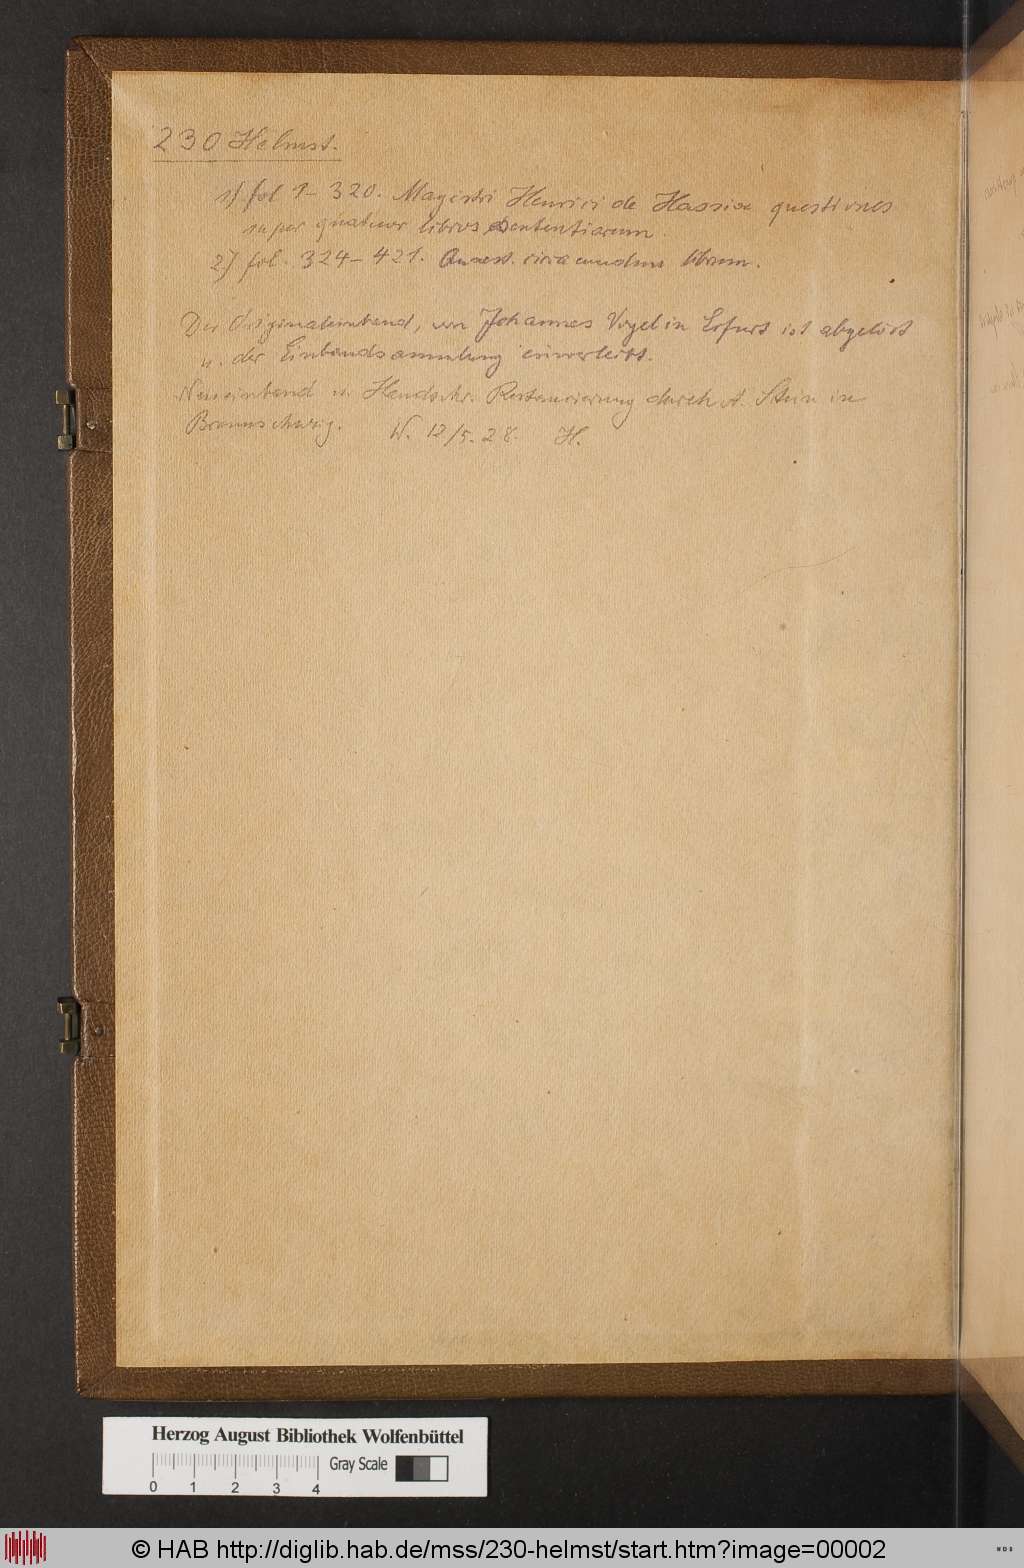 230 Helmst.
1) fol 1–320. Magistri Henrici de Hassia questiones
super quatuor libros Sententiarum.
2) fol. 324–421. Quaest. circa eundem librum.
Der Originaleinband, von Johannes Vogel in Erfurt ist abgelöst
u. der Einbandsammlung einverleibt.
Neueinband u. Handschr. Restaurierung durch A. Stein in
Braunschweig. W. 12/5.28. H.
Herzog August Bibliothek Wolfenbüttel
Gray Scale
0 1 2 3 4
© HAB http://diglib.hab.de/mss/230-helmst/start.htm?image=00002